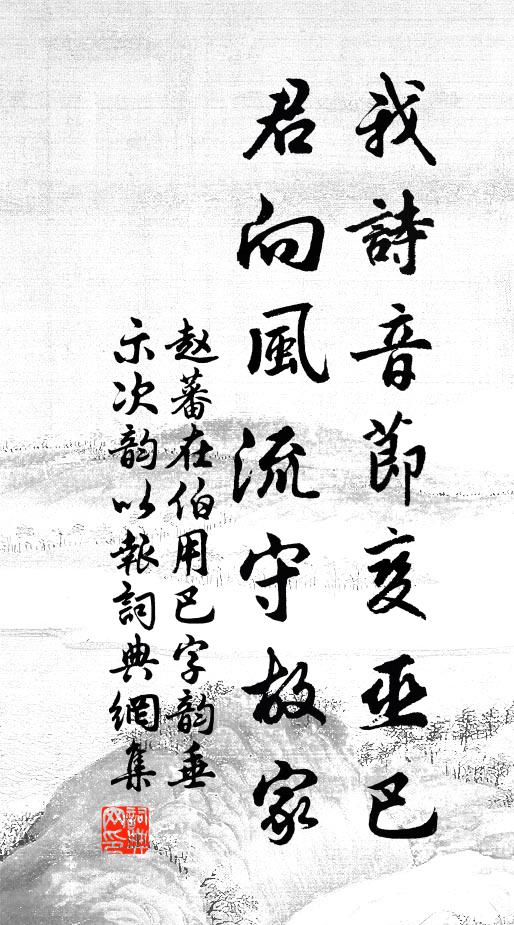 我詩音節变巫巴
君向風流守故家
赵蕃在伯用巴字韵垂
示次韵以報詞典網集